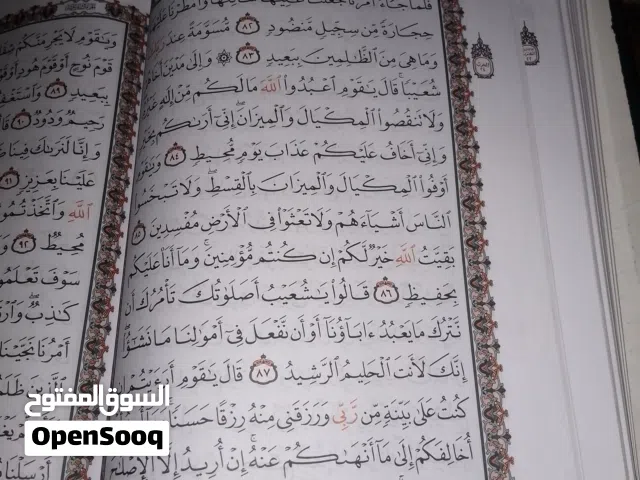 فلما جاء أمرنا جعلنا
حِجَارَةً مِّن سِجِّيلٍ مَّنضُودٍ ٨٢ مُّسَوَّمَةً عِندَ
وَمَا هِيَ مِنَ ٱلظَّٰلِمِينَ بِبَعِيدٍ ٨٣ ۞ وَإِلَىٰ مَدْيَنَ
شُعَيْبًا قَالَ يَٰقَوْمِ ٱعْبُدُوا۟ ٱللَّهَ مَالَكُم مِّنْ إِلَٰهٍ
وَلَا تَنقُصُوا۟ ٱلْمِكْيَالَ وَٱلْمِيزَانَ إِنِّىٓ أَرَىٰكُم
وَإِنِّىٓ أَخَافُ عَلَيْكُمْ عَذَابَ يَوْمٍ مُّحِيطٍ ٨٤ وَيَٰقَوْمِ
أَوْفُوا۟ ٱلْمِكْيَالَ وَٱلْمِيزَانَ بِٱلْقِسْطِ وَلَا تَبْخَسُوا۟
ٱلنَّاسَ أَشْيَآءَهُمْ وَلَا تَعْثَوْا۟ فِى ٱلْأَرْضِ مُفْسِدِينَ ٨٥
بَقِيَّتُ ٱللَّهِ خَيْرٌ لَّكُمْ إِن كُنتُم مُّؤْمِنِينَ وَمَآ أَنَا۠ عَلَيْكُم
بِحَفِيظٍ ٨٦ قَالُوا۟ يَٰشُعَيْبُ أَصَلَوٰتُكَ تَأْمُرُكَ أَن
نَّتْرُكَ مَا يَعْبُدُ ءَابَآؤُنَآ أَوْ أَن نَّفْعَلَ فِىٓ أَمْوَٰلِنَا مَا نَشَٰٓؤُا۟
إِنَّكَ لَأَنتَ ٱلْحَلِيمُ ٱلرَّشِيدُ ٨٧ قَالَ يَٰقَوْمِ أَرَءَيْتُمْ
كُنتُ عَلَىٰ بَيِّنَةٍ مِّن رَّبِّى وَرَزَقَنِى مِنْهُ رِزْقًا حَسَنًا وَمَآ
أُخَالِفَكُمْ إِلَىٰ مَآ أَنْهَىٰكُمْ عَنْهُ إِنْ أُرِيدُ إِلَّا ٱلْإِصْلَٰحَ
وَيَٰقَوْمِ لَا يَجْرِمَنَّكُمْ
قَوْمَ نُوحٍ أَوْ قَوْمَ هُودٍ أَوْ
بِبَعِيدٍ ٨٩
رَحِيمٌ وَدُودٌ ٩٠
وَإِنَّا لَنَرَىٰكَ فِينَا
عَلَيْنَا بِعَزِيزٍ ٩١
ٱللَّهِ وَٱتَّخَذْتُمُوهُ
مُحِيطٌ ٩٢
سَوْفَ تَعْلَمُونَ
كَٰذِبٌ
أَمْرُنَا نَجَّيْنَا
ٱلَّذِينَ ظَلَمُوا۟
أَرْسَلْنَا
السوق المفتوح
OpenSooq